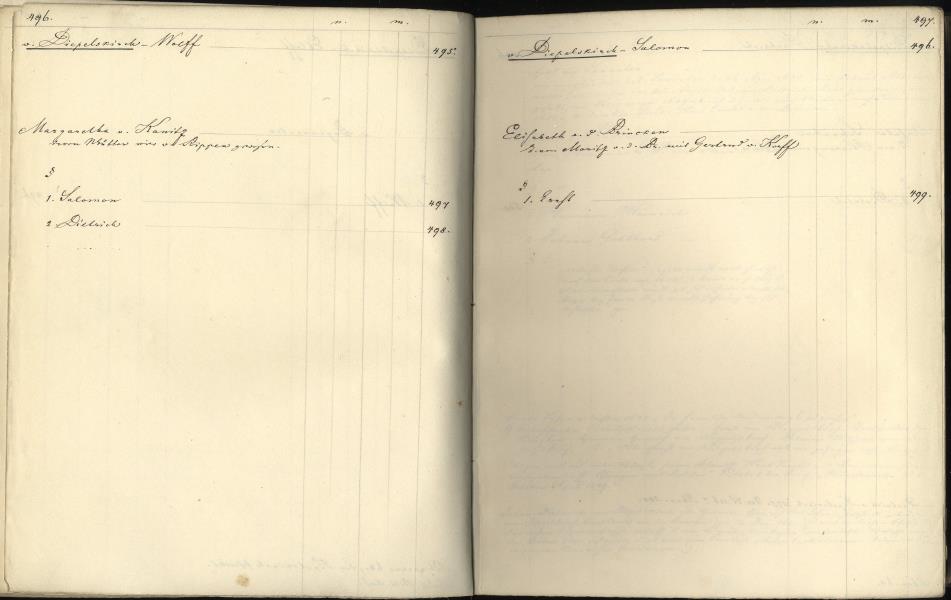 496.
n. m.
v. Diepelskirch - Wolff 495.
Margaretha v. Kanitz
deren Mutter eine v. Rippen gewesen.
1. Salomon 497
2 Dietrich 498.
n. m. 497.
v. Diepelskirch - Salomon 496.
Elisabeth v. d. Brincken
d. von Moritz v. d. Br. mit Gertrud v. Korff
1. Ernst 499.